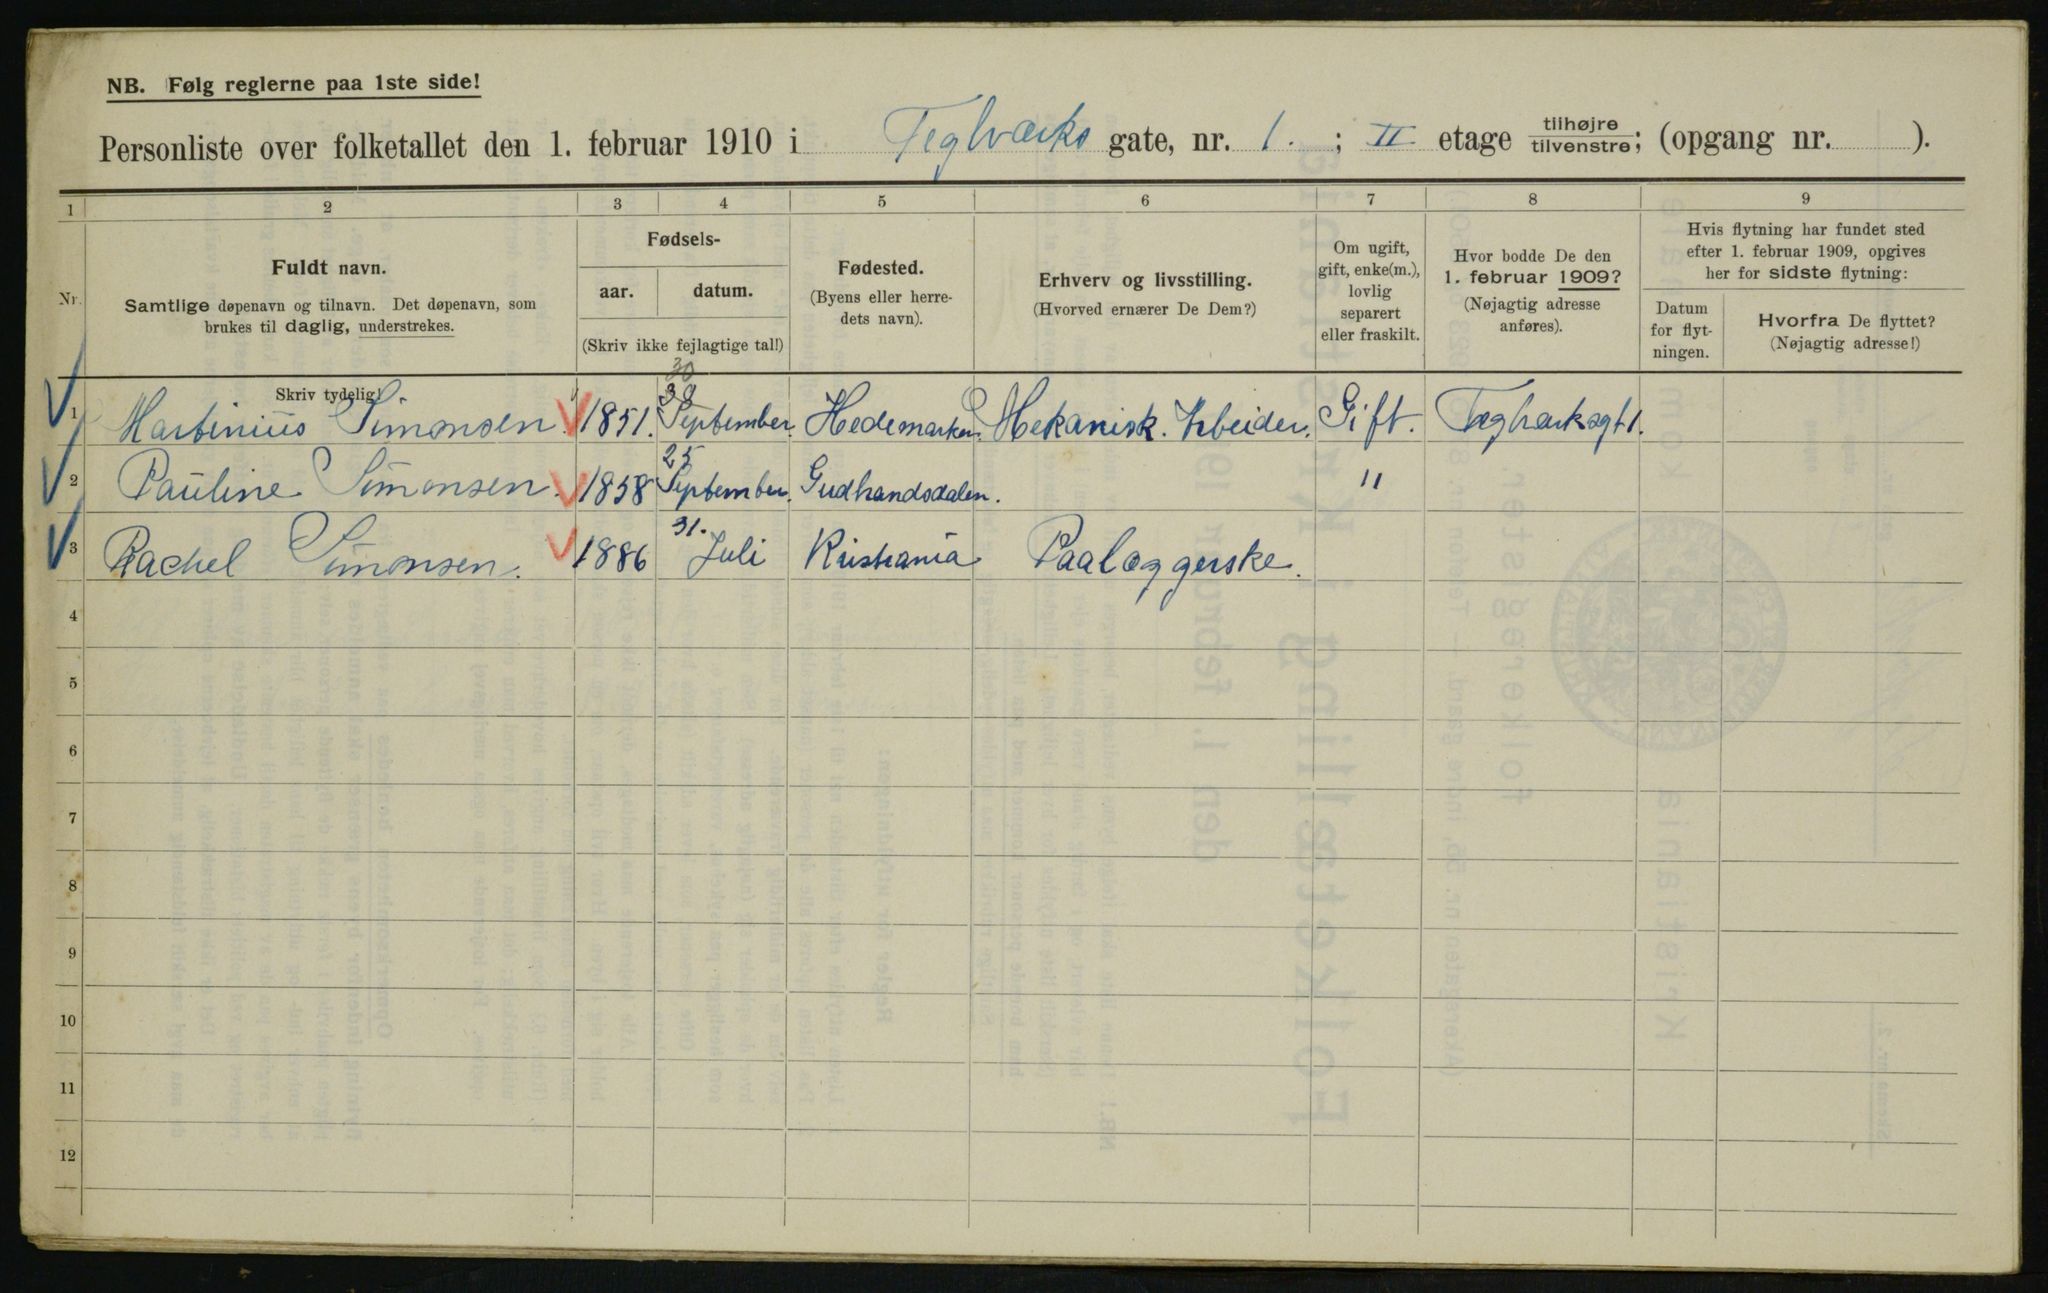 NB. Følg reglerne paa 1ste side!
Personliste over folketallet den 1. februar 1910 i Teglværks gate, nr. 1. ; II etage tilhøjre tilvenstre; (opgang nr. ).
1 2 3 4 5 6 7 8 9
Nr.
Fuldt navn.
Samtlige døpenavn og tilnavn. Det døpenavn, som
brukes til daglig, understrekes.
Fødsels-
aar. datum.
(Skriv ikke fejlagtige tal!)
Fødested.
(Byens eller herre-
dets navn).
Erhverv og livsstilling.
(Hvorved ernærer De Dem?)
Om ugift,
gift, enke(m.),
lovlig
separert
eller fraskilt.
Hvor bodde De den
1. februar 1909?
(Nøjagtig adresse
anføres).
Hvis flytning har fundet sted
efter 1. februar 1909, opgives
her for sidste flytning:
Datum
for flyt-
ningen.
Hvorfra De flyttet?
(Nøjagtig adresse!)
Skriv tydelig!
30
1 Martinius Simonsen. 1851. September. Hedemarken. Mekanisk. Arbeider. Gift. Teglværksgt 1.
25
2 Pauline Simonsen. 1858 September. Gudbrandsdalen. "
31.
3 Rachel Simonsen. 1886 Juli Kristiania Paalæggerske.
4
5
6
7
8
9
10
11
12